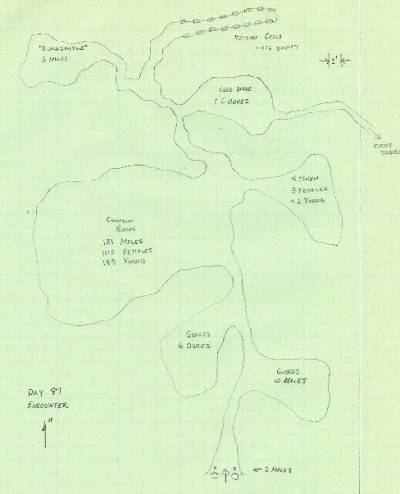 "BLACKSMITHS"
3 MALES
PRISON CELLS
- ALL EMPTY
5'
2 OGRES
ESCAPE
TUNNEL
KITCHEN
3 FEMALES
2 YOUNG
COMMON
ROOM
181 MALES
102 FEMALES
188 YOUNG
GUARDS
6 OGRES
GUARDS
10 MALES
DAY 81
ENCOUNTER
N
2 MALES